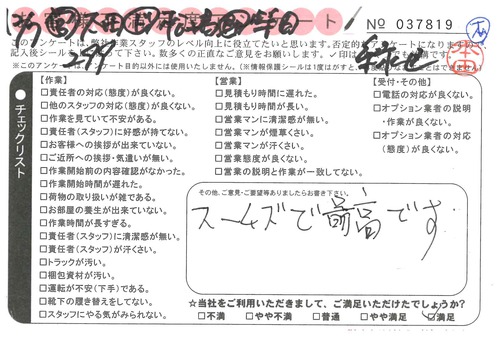 ート
№ 037819
このアンケートは、弊社作業スタッフのレベル向上に役立てたいと思います。否定的なアンケートになりますが
記入後シールを
※このアンケートは、アンケート目的以外には使用いたしません。(※情報保護シールは1度はがすと、
チェックリスト
【作業】
□責任者の対応(態度)が良くない。
□他のスタッフの対応(態度)が良くない。
□作業を見ていて不安がある。
□責任者(スタッフ)に好感が持てない。
□お客様への挨拶が出来ていない。
□ご近所への挨拶・気遣いが無い。
□作業開始前の内容確認がなかった。
□作業開始時間が遅れた。
□荷物の取り扱いが雑である。
□お部屋の養生が出来ていない。
□作業時間が長すぎる。
□責任者(スタッフ)に清潔感が無い。
□責任者(スタッフ)が汗くさい。
□トラックが汚い。
□梱包資材が汚い。
□運転が不安(下手)である。
□靴下の履き替えをしてない。
□スタッフにやる気がみられない。
【営業】
□見積もり時間に遅れた。
□見積もり時間が長い。
□営業マンに清潔感が無い。
□営業マンが煙草くさい。
□営業マンが汗くさい。
□営業態度が良くない。
□営業の説明と作業が一致してない。
【受付・その他】
□電話の対応が良くない。
□オプション業者の説明
・作業が良くない。
□オプション業者の対応
(態度)が良くない。
その他、ご意見・ご要望等ありましたらお書き下さい。
スムーズで最高です
☆当社をご利用いただきまして、ご満足いただけたでしょうか?
□不満 □やや不満 □普通 □やや満足 ☑満足